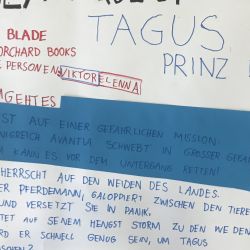 TAGUS
BLADE
ORCHARD BOOKS
PERSONEN VIKTOR ELENNA
PRINZ
GEHTES
IST AUF EINER GEFÄHRLICHEN MISSION:
NIGREICH AVANTIA SCHWEBT IN GROSSER GEFA
KANN ES VOR DEM UNTERGANG RETTEN!
HERRSCHT AUF DEN WEIDEN DES LANDES.
ER PFERDEMANN, GALOPPIERT ZWISCHEN DEN TIERE
UND VERSETZT SIE IN PANIK.
TET AUF SEINEM HENGST STORM ZU DEN WE
RD ER SCHNELL GENUG SEIN, UM TAGUS